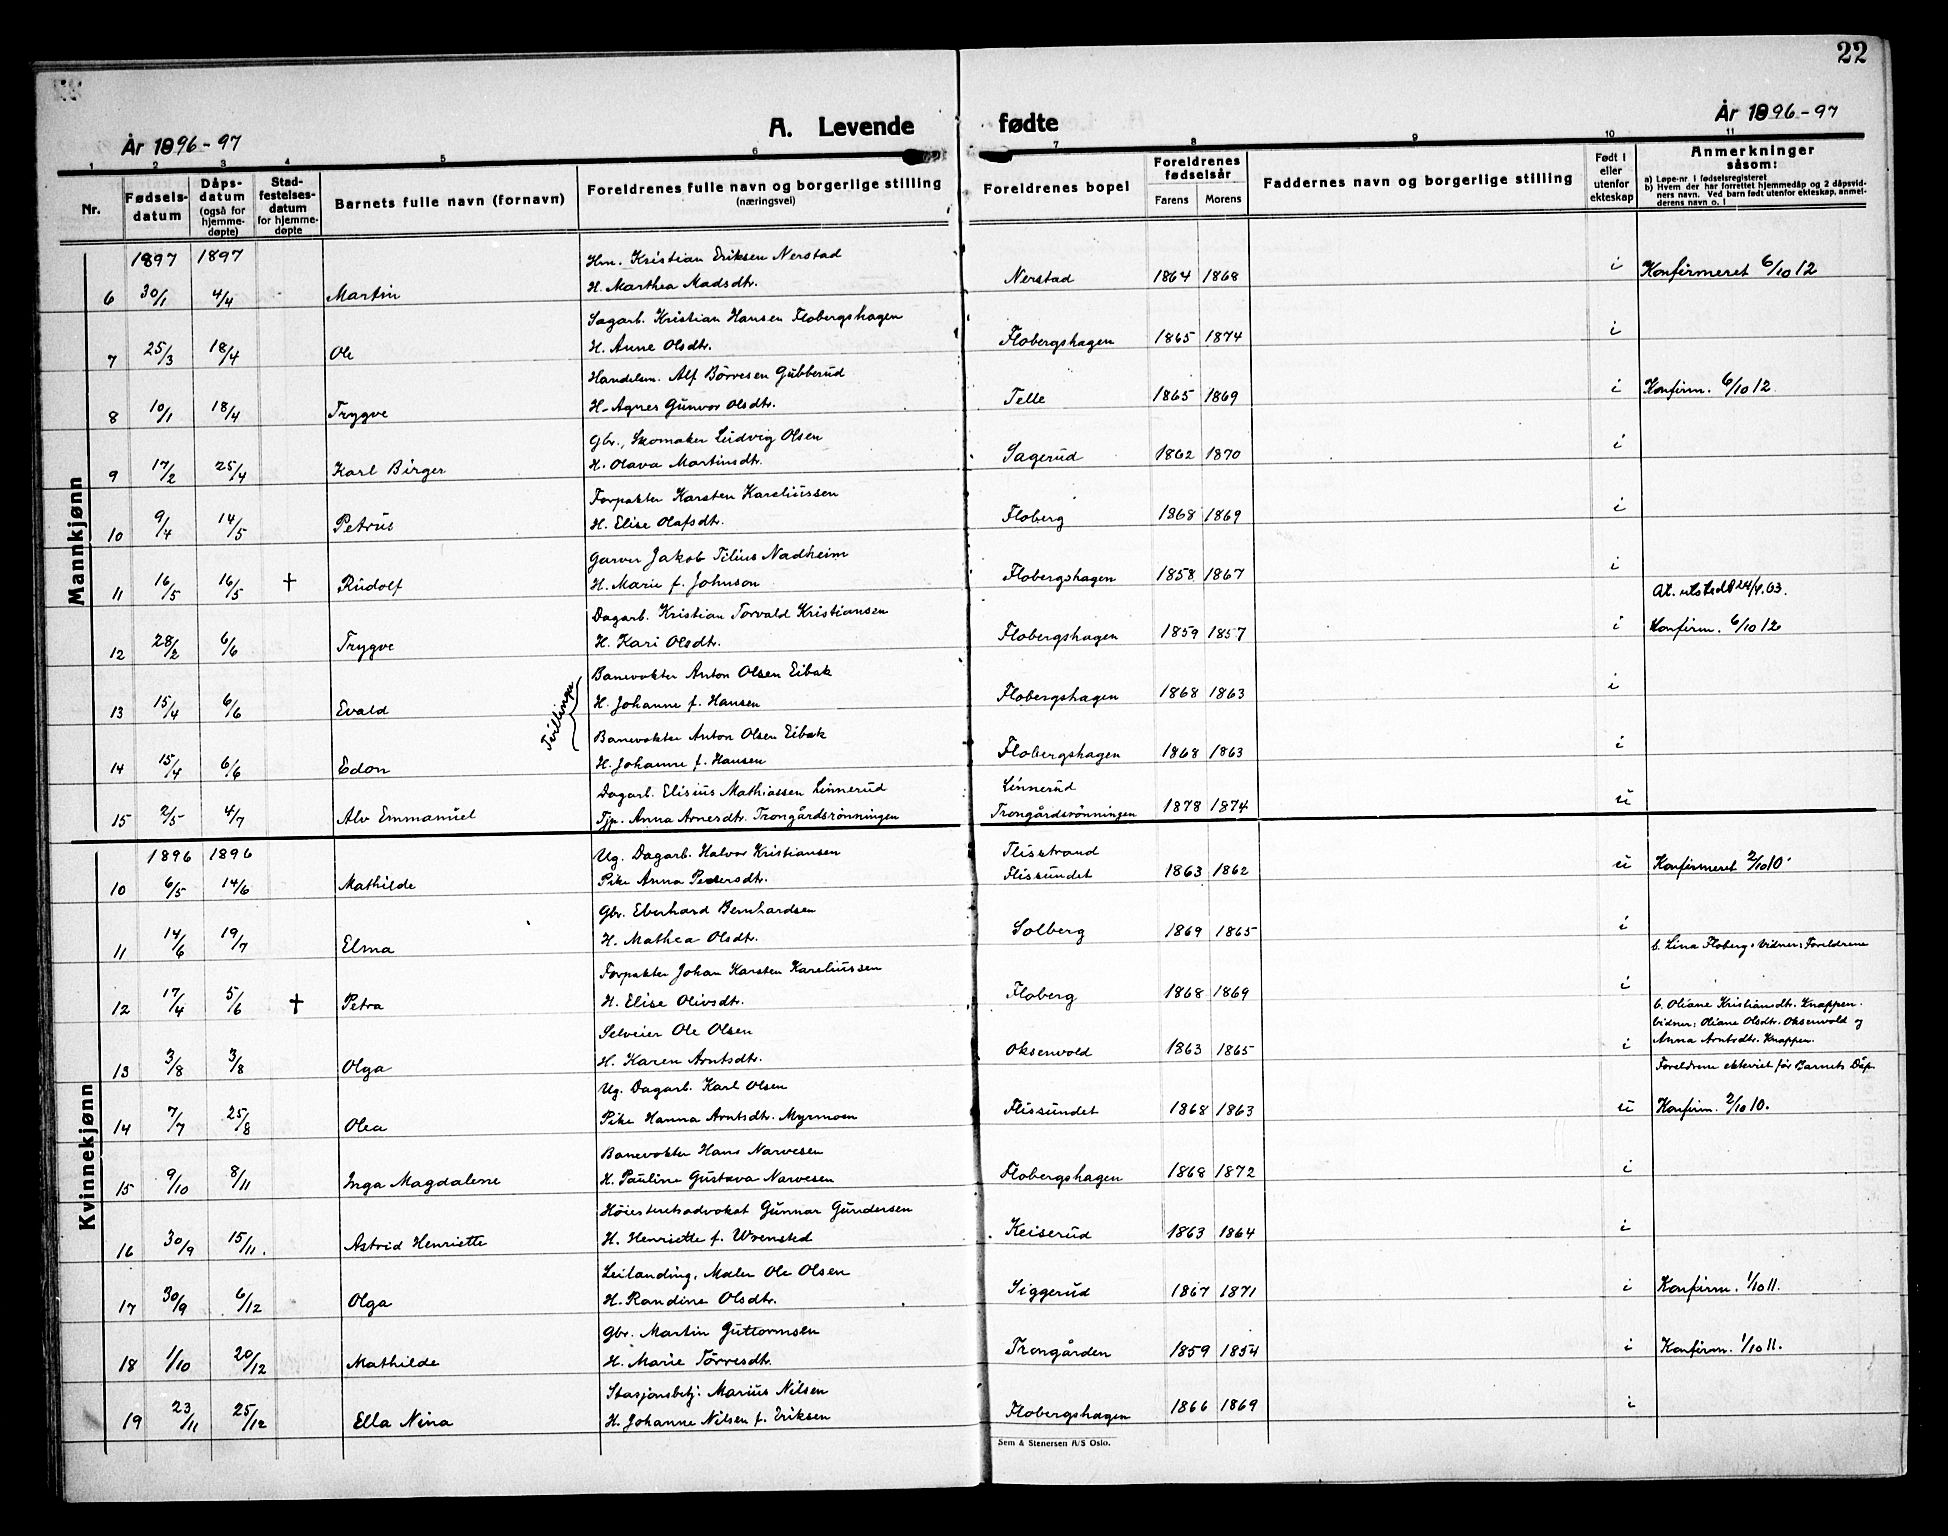 22
År 1896-97
A. Levende fødte
År 1896-97
1 2 3 4 5 6 7 8 9 10 11
Nr.
Fødsels-datum
Dåps-datum (også for hjemme-døpte)
Stad-festelses-datum for hjemme-døpte
Barnets fulle navn (fornavn)
Foreldrenes fulle navn og borgerlige stilling (næringsvei)
Foreldrenes bopel
Foreldrenes fødselsår
Farens Morens
Faddernes navn og borgerlige stilling
Født i eller utenfor ekteskap
Anmerkninger såsom:
a) Løpe-nr. i fødselsregisteret
b) Hvem der har forrettet hjemmedåp og 2 dåpsvid-
ners navn. Ved barn født utenfor ekteskap, anmel-
derens navn o. l
Mannkjønn
1897 1897 Hm. Kristian Eriksen Nerstad
6 30/1 4/4 Martin H. Marthea Madsdtr. Nerstad 1864 1868 i Konfirmeret 6/10 12
Sagarb. Kristian Hansen Flobergshagen
7 25/3 18/4 Ole H. Anne Olsdtr. Flobergshagen 1865 1874 i
Handelsm. Alf Børresen Gubberud
8 10/1 18/4 Trygve H. Agnes Gunvor Olsdtr. Telle 1865 1869 i Konfirm. 6/10 12.
Gbr., Skomaker Ludvig Olsen
9 17/2 25/4 Karl Birger H. Olava Martinsdtr. Sagerud 1862 1870 i
Forpakter Karsten Kareliussen
10 9/4 14/5 Petrus H. Elise Olafsdtr. Floberg 1868 1869 i
Garver Jakob Tilius Nadheim
11 16/5 16/5 † Rudolf H. Marie f. Johnson Flobergshagen 1858 1867 i
At. utstedt 24/4.63.
Dagarb. Kristian Torvald Kristiansen
12 28/2 6/6 Trygve H. Kari Olsdtr. Flobergshagen 1859 1857 i Konfirm. 6/10 12
Banevokter Anton Olsen Eibak
13 15/4 6/6 Evald H. Johanne f. Hansen Flobergshagen 1868 1863 i
Tvillinger
Banevokter Anton Olsen Eibak
14 15/4 6/6 Edon H. Johanne f. Hansen Flobergshagen 1868 1863 i
Dagarb. Elisius Mathiassen Linnerud Linnerud
15 2/5 4/7 Alv Emmanuel Tjp. Anna Arnesdtr. Trongårdsrønningen Trongårdsrønningen 1878 1874 u
Kvinnekjønn
1896 1896 Ug. Dagarb. Halvor Kristiansen Flisstrand
10 6/5 14/6 Mathilde Pike Anna Pedersdtr. Flissundet 1863 1862 u Konfirmeret 2/10 10.
Gbr. Eberhard Bernhardsen
11 14/6 19/7 Elma H. Mathea Olsdtr. Solberg 1869 1865 i
b. Lina Floberg. Vidner: Foreldrene
Forpakter Johan Karsten Kareliussen
12 17/4 5/6 † Petra H. Elise Olivsdtr. Floberg 1868 1869 i
b. Oliane Kristiansdtr. Knappen.
Vidner: Oliane Olsdtr. Oksenvold og
Selveier Ole Olsen
13 3/8 3/8 Olga H. Karen Arntsdtr. Oksenvold 1863 1865 i Anna Arntsdtr. Knappen.
Foreldrene ekteviet før Barnets Dåp.
Ug. Dagarb. Karl Olsen
14 7/7 25/8 Olea Pike Hanna Arntsdtr. Myrmoen Flissundet 1868 1863 u Konfirm. 2/10 10.
Banevokter Hans Narvesen
15 9/10 8/11 Inga Magdalene H. Pauline Gustava Narvesen Flobergshagen 1868 1872 i
Høiesteretsadvokat Gunnar Gundersen
16 30/9 15/11. Astrid Henriette H. Henriette f. Wrensted Keiserud 1863 1864 i
Leilanding, Maler Ole Olsen
17 30/9 6/12 Olga H. Randine Olsdtr. Siggerud 1867 1871 i Konfirm. 1/10 11.
Gbr. Martin Guttormsen
18 1/10 20/12 Mathilde H. Marie Tørresdtr. Trongården 1859 1854 i Konfirm. 1/10 11.
Stasjonsbetj. Marius Nilsen
19 23/11 25/12 Ella Nina H. Johanne Nilsen f. Eriksen Flobergshagen 1866 1869 i
Sem & Stenersen A/S Oslo.